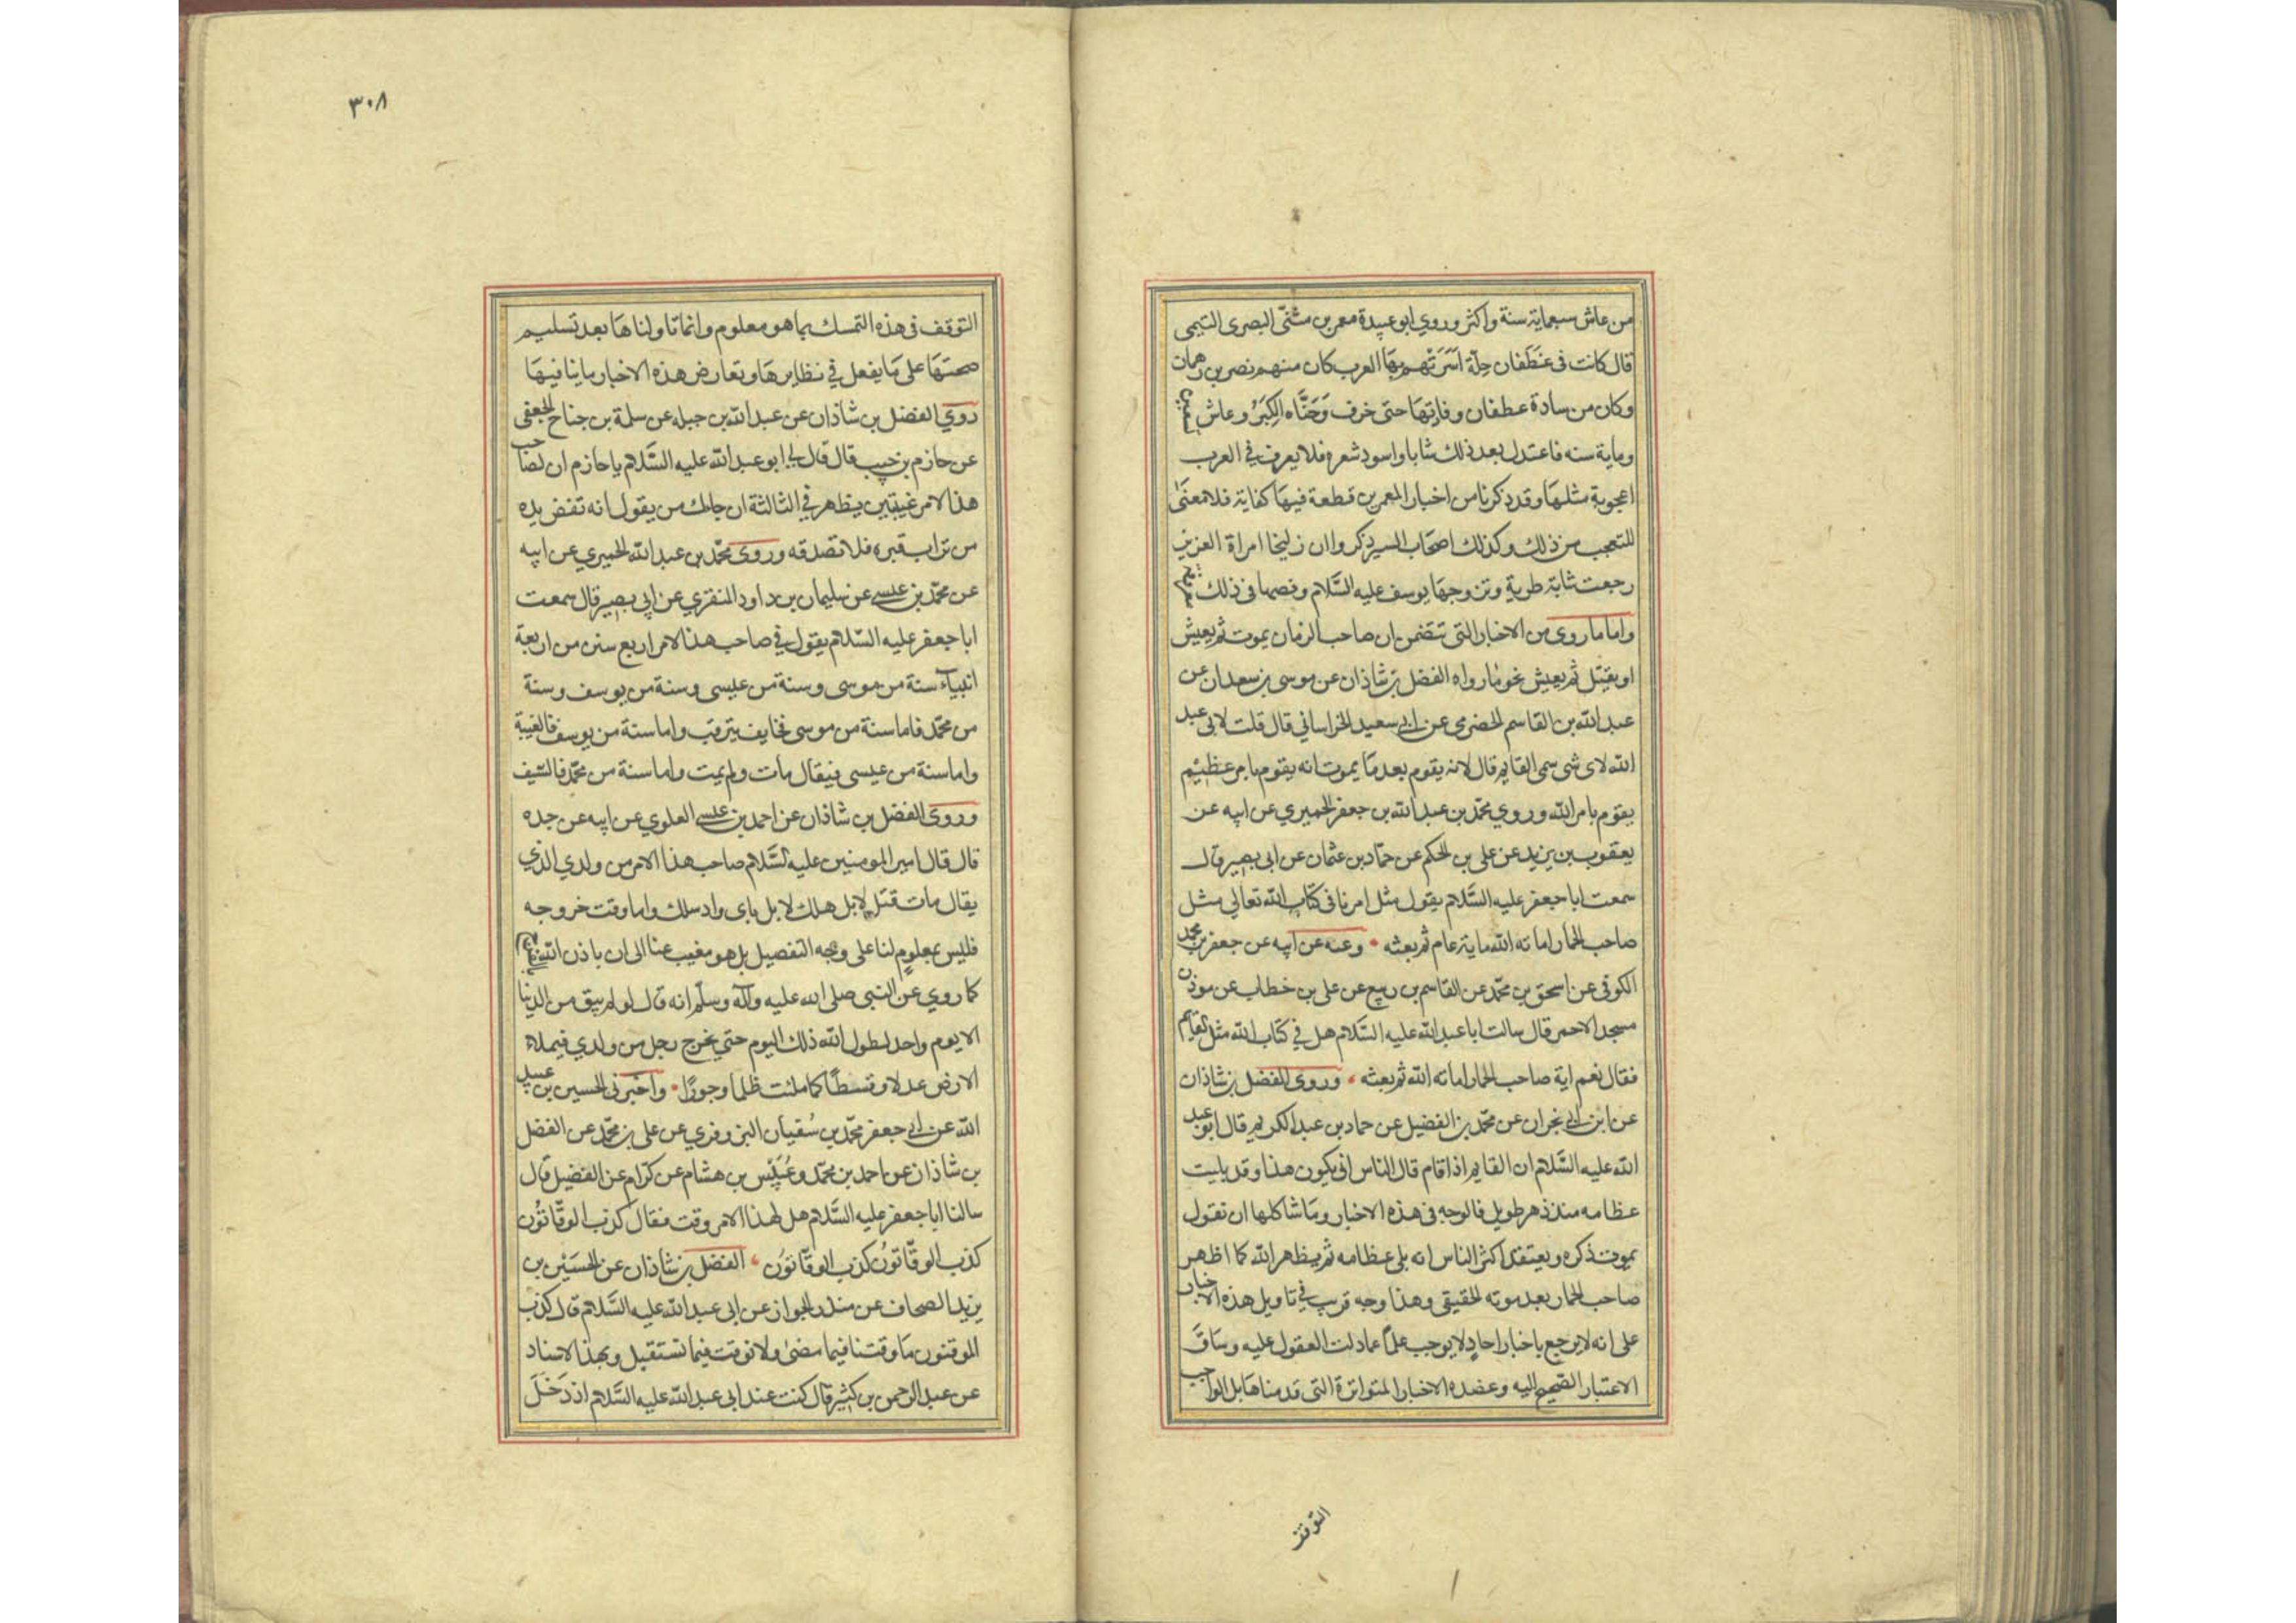 من عاش سبعماية سنة واكثر وروي ابو عبيدة معمر بن مثنّى البصرى التيمى
قال كانت فى غَطَفان حِلّة اَشرَتْهم بِهَا العرب كان منهم نصر بن دهمان
وكان من سادة غطفان وقادتهَا حتى خرف وَحَنّاه الكِبَرُ وعاش تسعين
وماية سنه فاعتدل بعد ذلك شابا واسود شعره فلا يعرف في العرب
اعجوبة مثلهَا وقد ذكرنا من اخبار المعمرين قطعة فيهَا كفاية فلا معنَى
للتعجب من ذلك وكذلك اصحَاب السير ذكروا ان زليخا امراة العزيز
رجعت شابة طرية وتزوجهَا يوسف عليه السَّلام وقصها فى ذلك
واما ما روى من الاخبار التى تتضمن ان صاحب الزمان يموت ثم يعيش
او يقتل ثم يعيش نحو ما رواه الفضل بن شاذان عن موسى بن سعدان عن
عبد الله بن القاسم الحضرمي عن ابي سعيد الخراساني قال قلت لابى عبد
الله لاى شى سمى القايم قال لانه يقوم بعد مَا يموت انه يقوم بامر عظيم
يقوم بامر الله وروي محمّد بن عبد الله بن جعفر الحميري عن ابيه عن
يعقوب بن يزيد عن على بن الحكم عن حمّاد بن عثمان عن ابى بصير قال
سمعت ابا جعفر عليه السَّلام يقول مثل امرنا فى كتاب الله تعالى مثل
صاحب الحمار اماته الله ماية عام ثم بعثه • وعنه عن ابيه عن جعفر بن محمد
الكوفى عن اسحق بن محمّد عن القاسم بن ربيع عن على بن خطاب عن موذن
مسجد الاحمر قال سالت ابا عبد الله عليه السَّلام هل في كتاب الله مثل القايم
فقال نعم اية صاحب الحمار اماته الله ثم بعثه • وروى الفضل بن شاذان
عن ابن ابي نجران عن محمّد بن الفضيل عن حماد بن عبد الكريم قال ابو عبد
الله عليه السَّلام ان القايم اذا قام قال الناس انى يكون هذا وقد بليت
عظامه منذ دهر طويل فالوجه فى هذه الاخبار ومَا شاكلها ان نقول
بموت ذكره ويعتقد اكثر الناس انه بلى عظامه ثم يظهر الله كما اظهر
صاحب الحمار بعد موته الحقيقى وهذا وجه قريب في تاويل هذه الاخبار
على انه لا يرجع باخبار احادٍ لا يوجب علمًا عما دلت العقول عليه وسَاقَ
الاعتبار الصّحيح اليه وعضده الاخبار المتواترة التى قدمناهَا بل الواجب
التوقف
٣٠٨
التوقف فى هذه التمسك بما هو معلوم وانما تاولناهَا بعد تسليم
صحتهَا على مَا يفعل في نظايرهَا وتعارض هذه الاخبار ما ينافيهَا
روي الفضل بن شاذان عن عبد الله بن جبله عن سلمة بن جناح الجعفى
عن حازم بن حبيب قال قال لي ابو عبد الله عليه السَّلام يا حازم ان لصاحب
هذا الامر غيبتين يظهر في الثالثة ان جاءك من يقول انه نفض يده
من تراب قبره فلا تصدقه وروى محمّد بن عبد الله الحميري عن ابيه
عن محمّد بن عيسى عن سليمان بن داود المنقري عن ابي بصير قال سمعت
ابا جعفر عليه السّلام يقول في صاحب هذا الامر اربع سنن من اربعة
انبياء سنة من موسى وسنة من عيسى وسنة من يوسف وسنة
من محمّد فاما سنة من موسى فخايف يترقب واما سنة من يوسف فالغيبة
واما سنة من عيسى فيقال مات ولم يمت واما سنة من محمّد فالسّيف
وروى الفضل بن شاذان عن احمد بن عيسى العلوي عن ابيه عن جده
قال قال امير المومنين عليه السَّلام صاحب هذا الامر من ولدي الذي
يقال مات قتل لا بل هلك لا بل باى واد سلك واما وقت خروجه
فليس بمعلوم لنا على وجه التفصيل بل هو مغيب عنا الى ان ياذن الله
كما روي عن النبى صلى الله عليه وآله وسلّم انه قال لو لم يبق من الدنيا
الا يوم واحد لطول الله ذلك اليوم حتى يخرج رجل من ولدي فيملاء
الارض عدلا وقسطًا كما ملئت ظلما وجورًا • واخبرنى الحسين بن عبيد
الله عن ابي جعفر محمّد بن سُفيان البزوفري عن على بن محمّد عن الفضل
بن شاذان عن احمد بن محمّد وعُبَيْس بن هشام عن كرّام عن الفضيل قال
سالنا ابا جعفر عليه السَّلام هل لهذا الامر وقت فقال كذب الوقّاتُون
كذب الوقّاتُون كذب الوقّاتوُن • الفضل بن شاذان عن الحسَيْن بن
يزيد الصحاف عن منذر الجواز عن ابى عبد الله عليه السَّلام قال كذب
الموقتون مَا وقتنا فيما مضىٰ ولا نوقت فيما نستقبل وبهذا الاسناد
عن عبد الرحمن بن كثير قال كنت عند ابى عبد الله عليه السَّلام اذ دَخَلَ